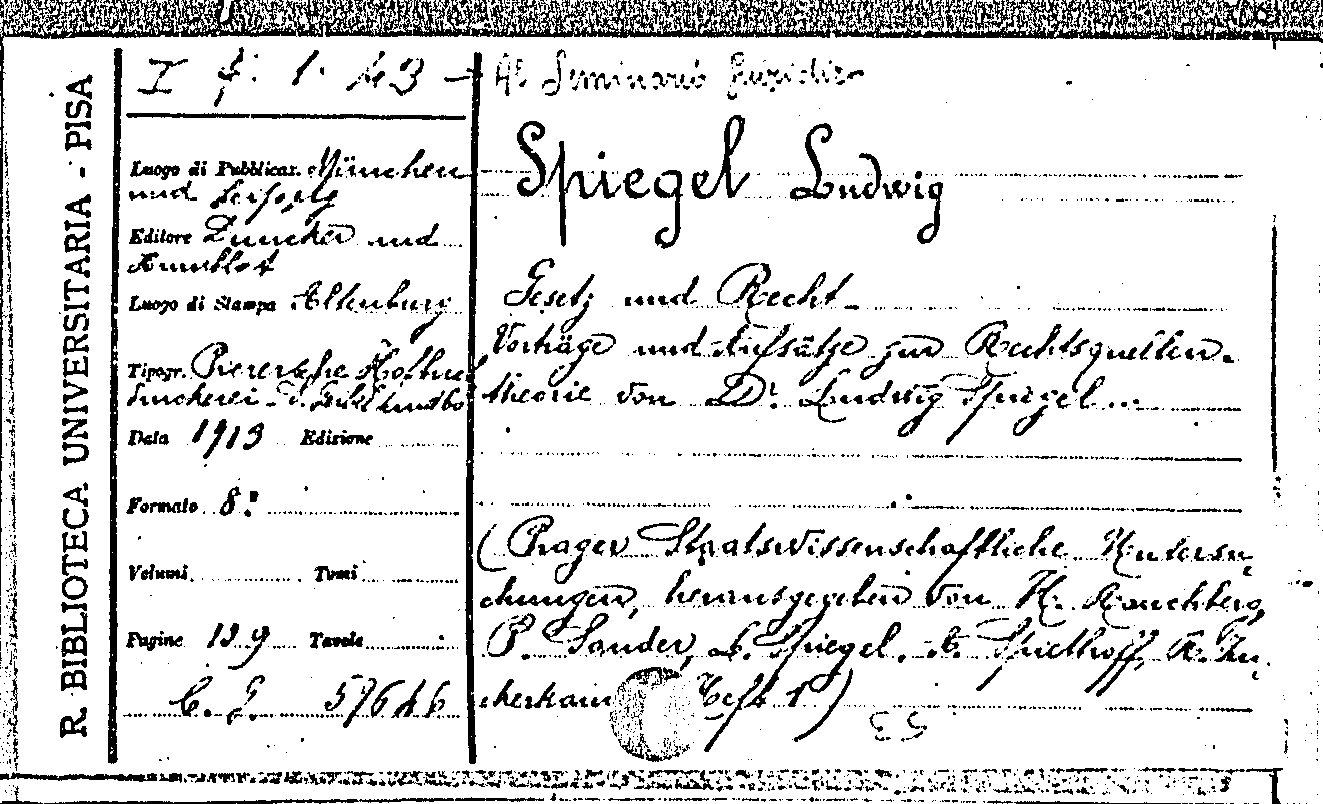 R. BIBLIOTECA UNIVERSITARIA - PISA
I f. 1. 43 - Al Seminario Giuridico
Luogo di Pubblicaz. München
und Leipzig
Editore Duncker und
Humblot
Luogo di Stampa Altenburg
Tipogr. Pierersche Hofbuch
druckerei
Data 1913 Edizione
Formato 8º
Volumi Tomi
Pagine 139 Tavole
C. I.
Spiegel Ludwig
Gesetz und Recht
Vorträge und Aufsätze zur Rechtsquellen-
theorie von Dr. Ludwig Spiegel ...
(Prager Staatswissenschaftliche Untersu-
chungen, herausgegeben von H. Rauchberg,
P. Sander, L. Spiegel, A. Spiethoff, R. Zu-
ckerkandl Heft 1)